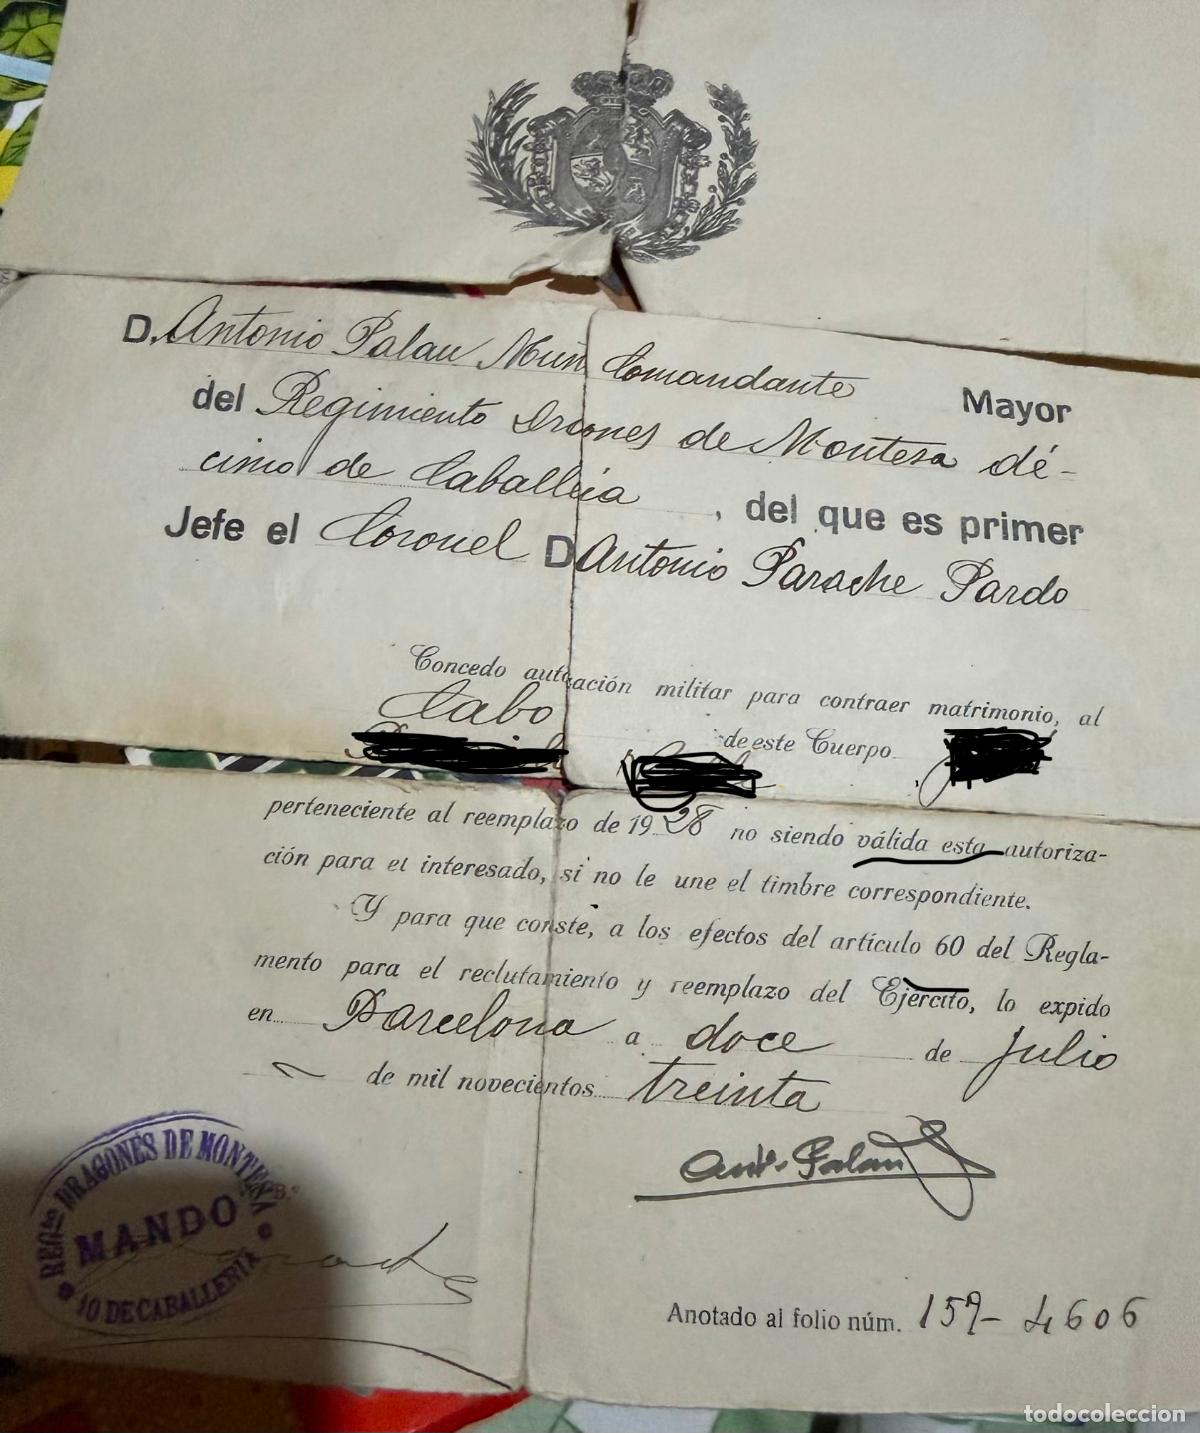 D. Antonio Palau Muñ Comandante Mayor
del Regimiento Drcones de Montesa dé-
cimo de Caballeia, del que es primer
Jefe el Coronel D Antonio Parache Pardo
Concedo autoación militar para contraer matrimonio, al
Cabo de este Cuerpo
perteneciente al reemplazo de 1928 no siendo válida esta autoriza-
ción para el interesado, si no le une el timbre correspondiente.
Y para que conste, a los efectos del artículo 60 del Regla-
mento para el reclutamiento y reemplazo del Ejército, lo expido
en Barcelona a doce de Julio
de mil novecientos treinta
Antº Palau
REGto DRAGONES DE MONTESA
MANDO
10 DE CABALLERIA
Anotado al folio núm. 159-4606
todocoleccion